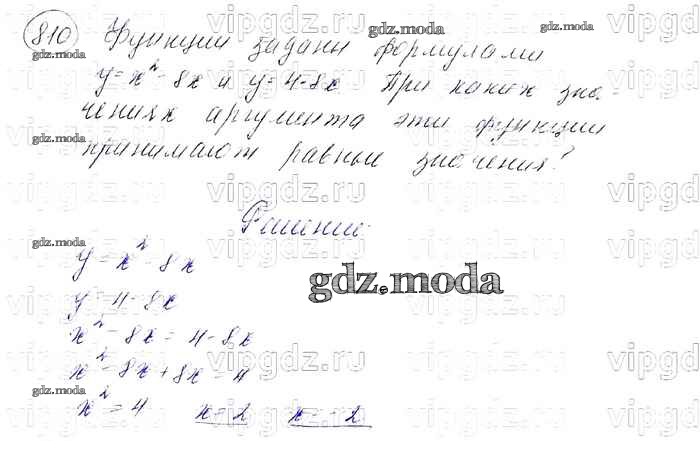 810 Функции заданы формулами
y = x² - 8x и y = 4 - 8x При каких зна-
чениях аргумента эти функции
принимают равные значения?
Решение:
y = x² - 8x
y = 4 - 8x
x² - 8x = 4 - 8x
x² - 8x + 8x = 4
x² = 4 x = 2 x = -2
gdz.moda
vipgdz.ru